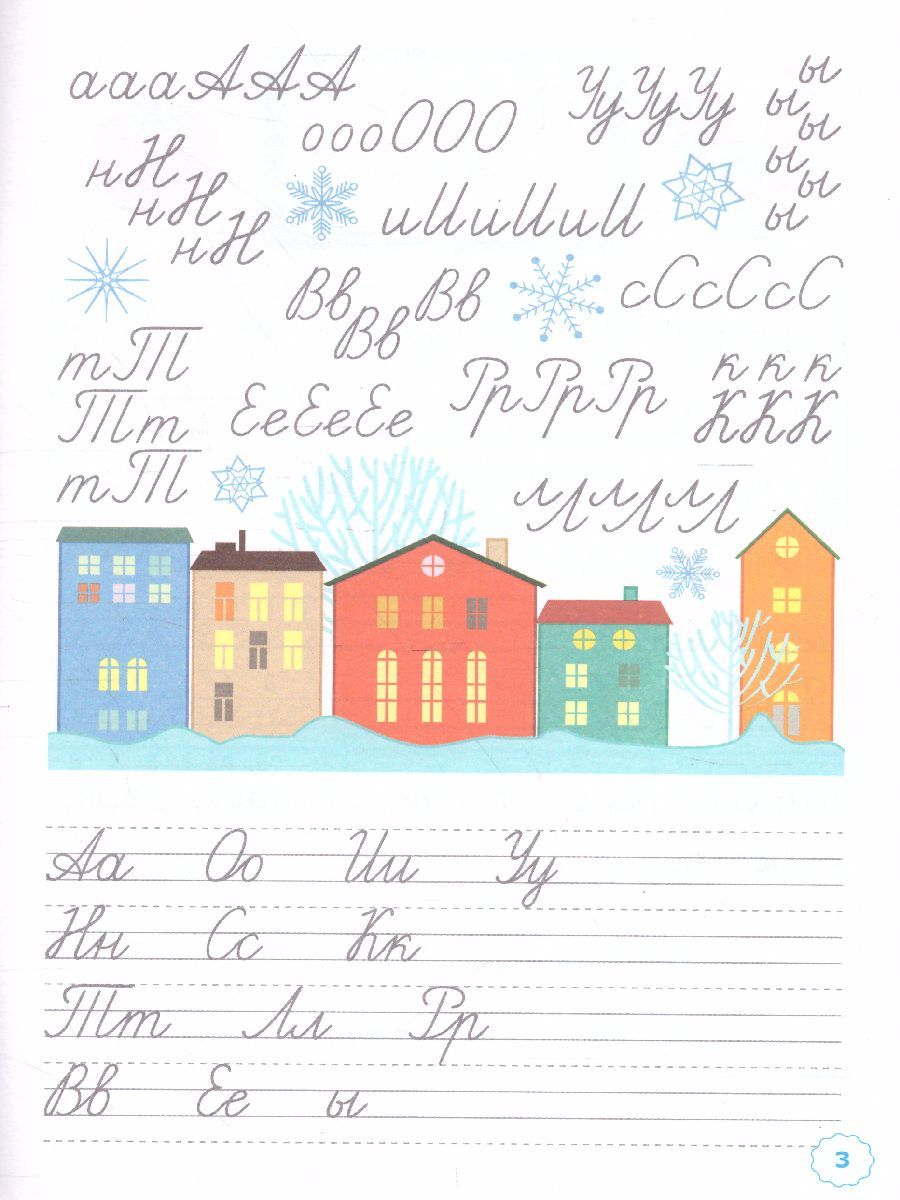 аааААА
оооООО
УуУуУу
ы
ы
ы
ы
ы
ы
нН
нН
нН
иИиИиИ
Вв
Вв
Вв
сСсСсС
тТ
Тт
тТ
ЕеЕеЕе
РрРрРр
к к к
ККК
лЛлЛлЛ
Аа Оо Ии Уу
Нн Сс Кк
Тт Лл Рр
Вв Ее ы
3